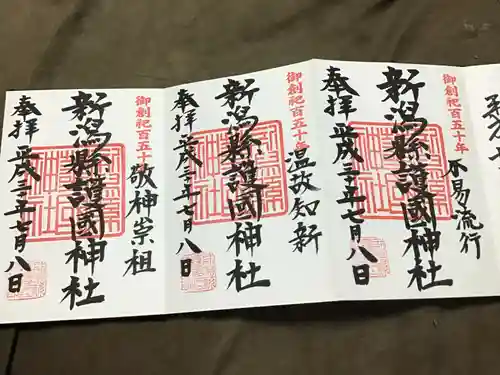 御創祀百五十年
敬神崇祖
新潟縣護國神社
奉拝
平成三十年七月八日
御創祀百五十年
温故知新
新潟縣護國神社
奉拝
平成三十年七月八日
御創祀百五十年
不易流行
新潟縣護國神社
奉拝
平成三十年七月八日